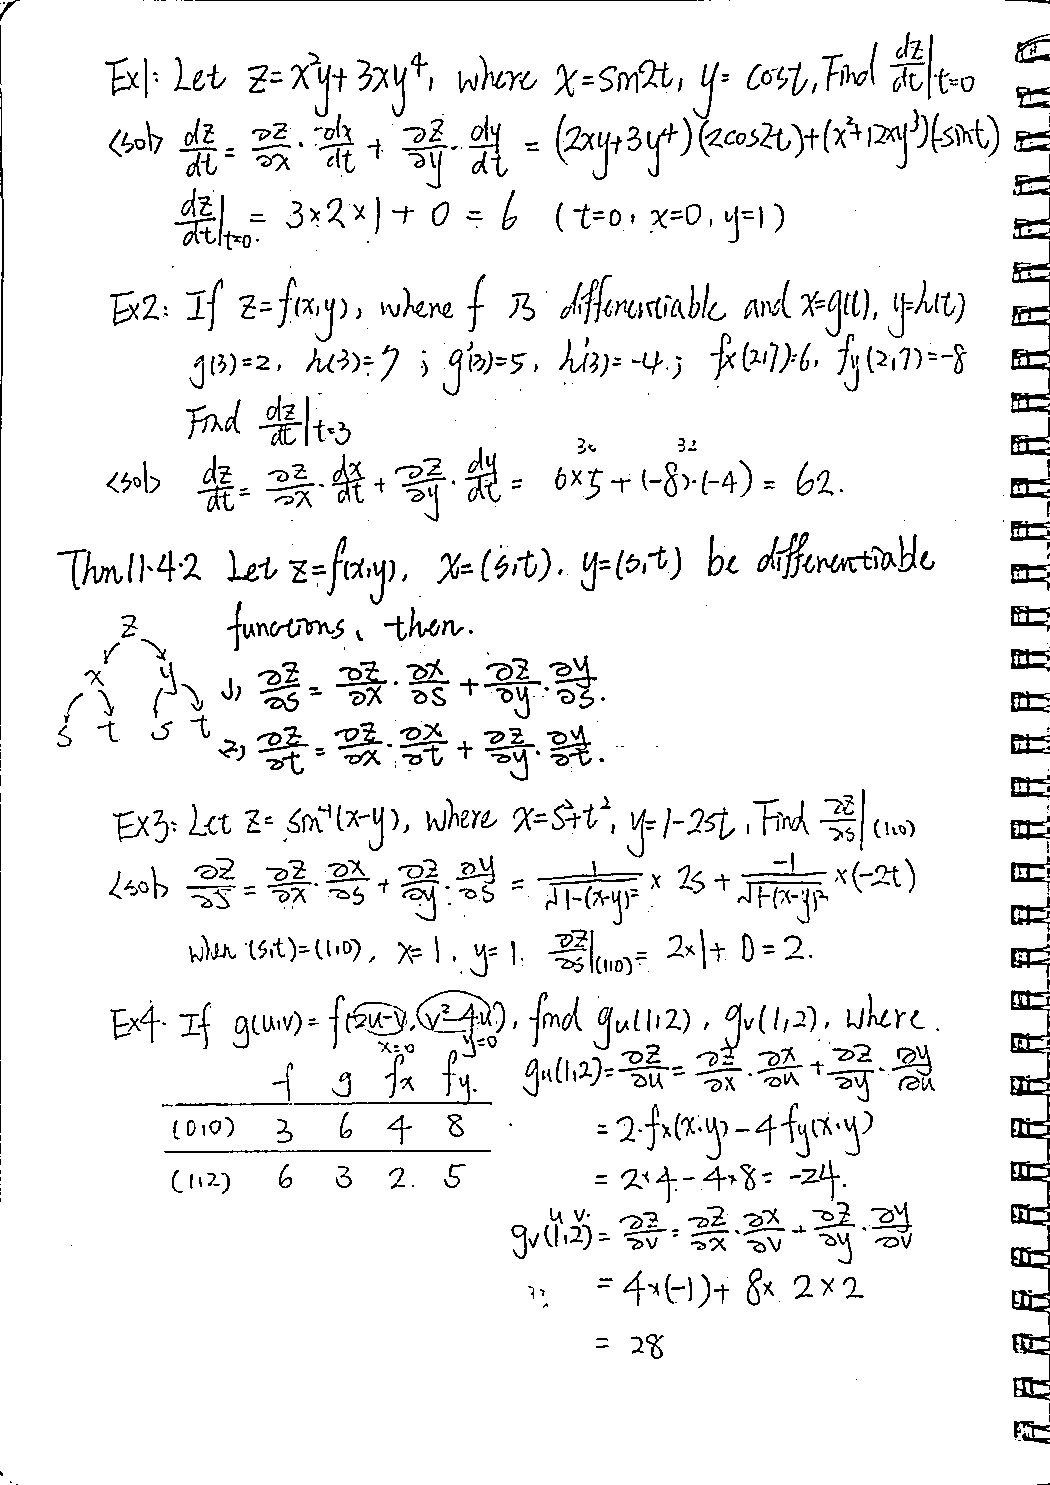 Ex1: Let z=x²y+3xy⁴, where x=sin2t, y=cost, Find dz/dt|t=0
<sol> dz/dt = ∂z/∂x · dx/dt + ∂z/∂y · dy/dt = (2xy+3y⁴)(2cos2t)+(x²+12xy³)(-sint)
dz/dt|t=0. = 3×2×1+0 = 6 (t=0, x=0, y=1)
Ex2: If z=f(x,y), where f is differentiable and x=g(t), y=h(t)
g(3)=2, h(3)=7 ; g'(3)=5, h'(3)=-4 ; fx(2,7)=6, fy(2,7)=-8
Find dz/dt|t=3
30 32
<sol> dz/dt = ∂z/∂x · dx/dt + ∂z/∂y · dy/dt = 6×5+(-8)·(-4) = 62.
Thm11.4.2 Let z=f(x,y), x=(s,t), y=(s,t) be differentiable
functions, then.
z
x y
s t s t
1) ∂z/∂s = ∂z/∂x · ∂x/∂s + ∂z/∂y · ∂y/∂s.
2) ∂z/∂t = ∂z/∂x · ∂x/∂t + ∂z/∂y · ∂y/∂t.
Ex3: Let z= sin⁻¹(x-y), where x=s²+t², y=1-2st, Find ∂z/∂s|(1,0)
<sol> ∂z/∂s = ∂z/∂x · ∂x/∂s + ∂z/∂y · ∂y/∂s = 1/√(1-(x-y)²) × 2s + -1/√(1-(x-y)²) ×(-2t)
when (s,t)=(1,0), x=1, y=1. ∂z/∂s|(1,0) = 2×1+0=2.
Ex4. If g(u,v)=f(2u-v, v²-4u), find gu(1,2), gv(1,2), where.
x=0 y=0
f g fx fy.
(0,0) 3 6 4 8
(1,2) 6 3 2. 5
gu(1,2)= ∂z/∂u = ∂z/∂x · ∂x/∂u + ∂z/∂y · ∂y/∂u
= 2·fx(x,y)-4fy(x,y)
= 2×4-4×8= -24.
u v.
gv(1,2)= ∂z/∂v = ∂z/∂x · ∂x/∂v + ∂z/∂y · ∂y/∂v
= 4×(-1)+ 8× 2×2
= 28